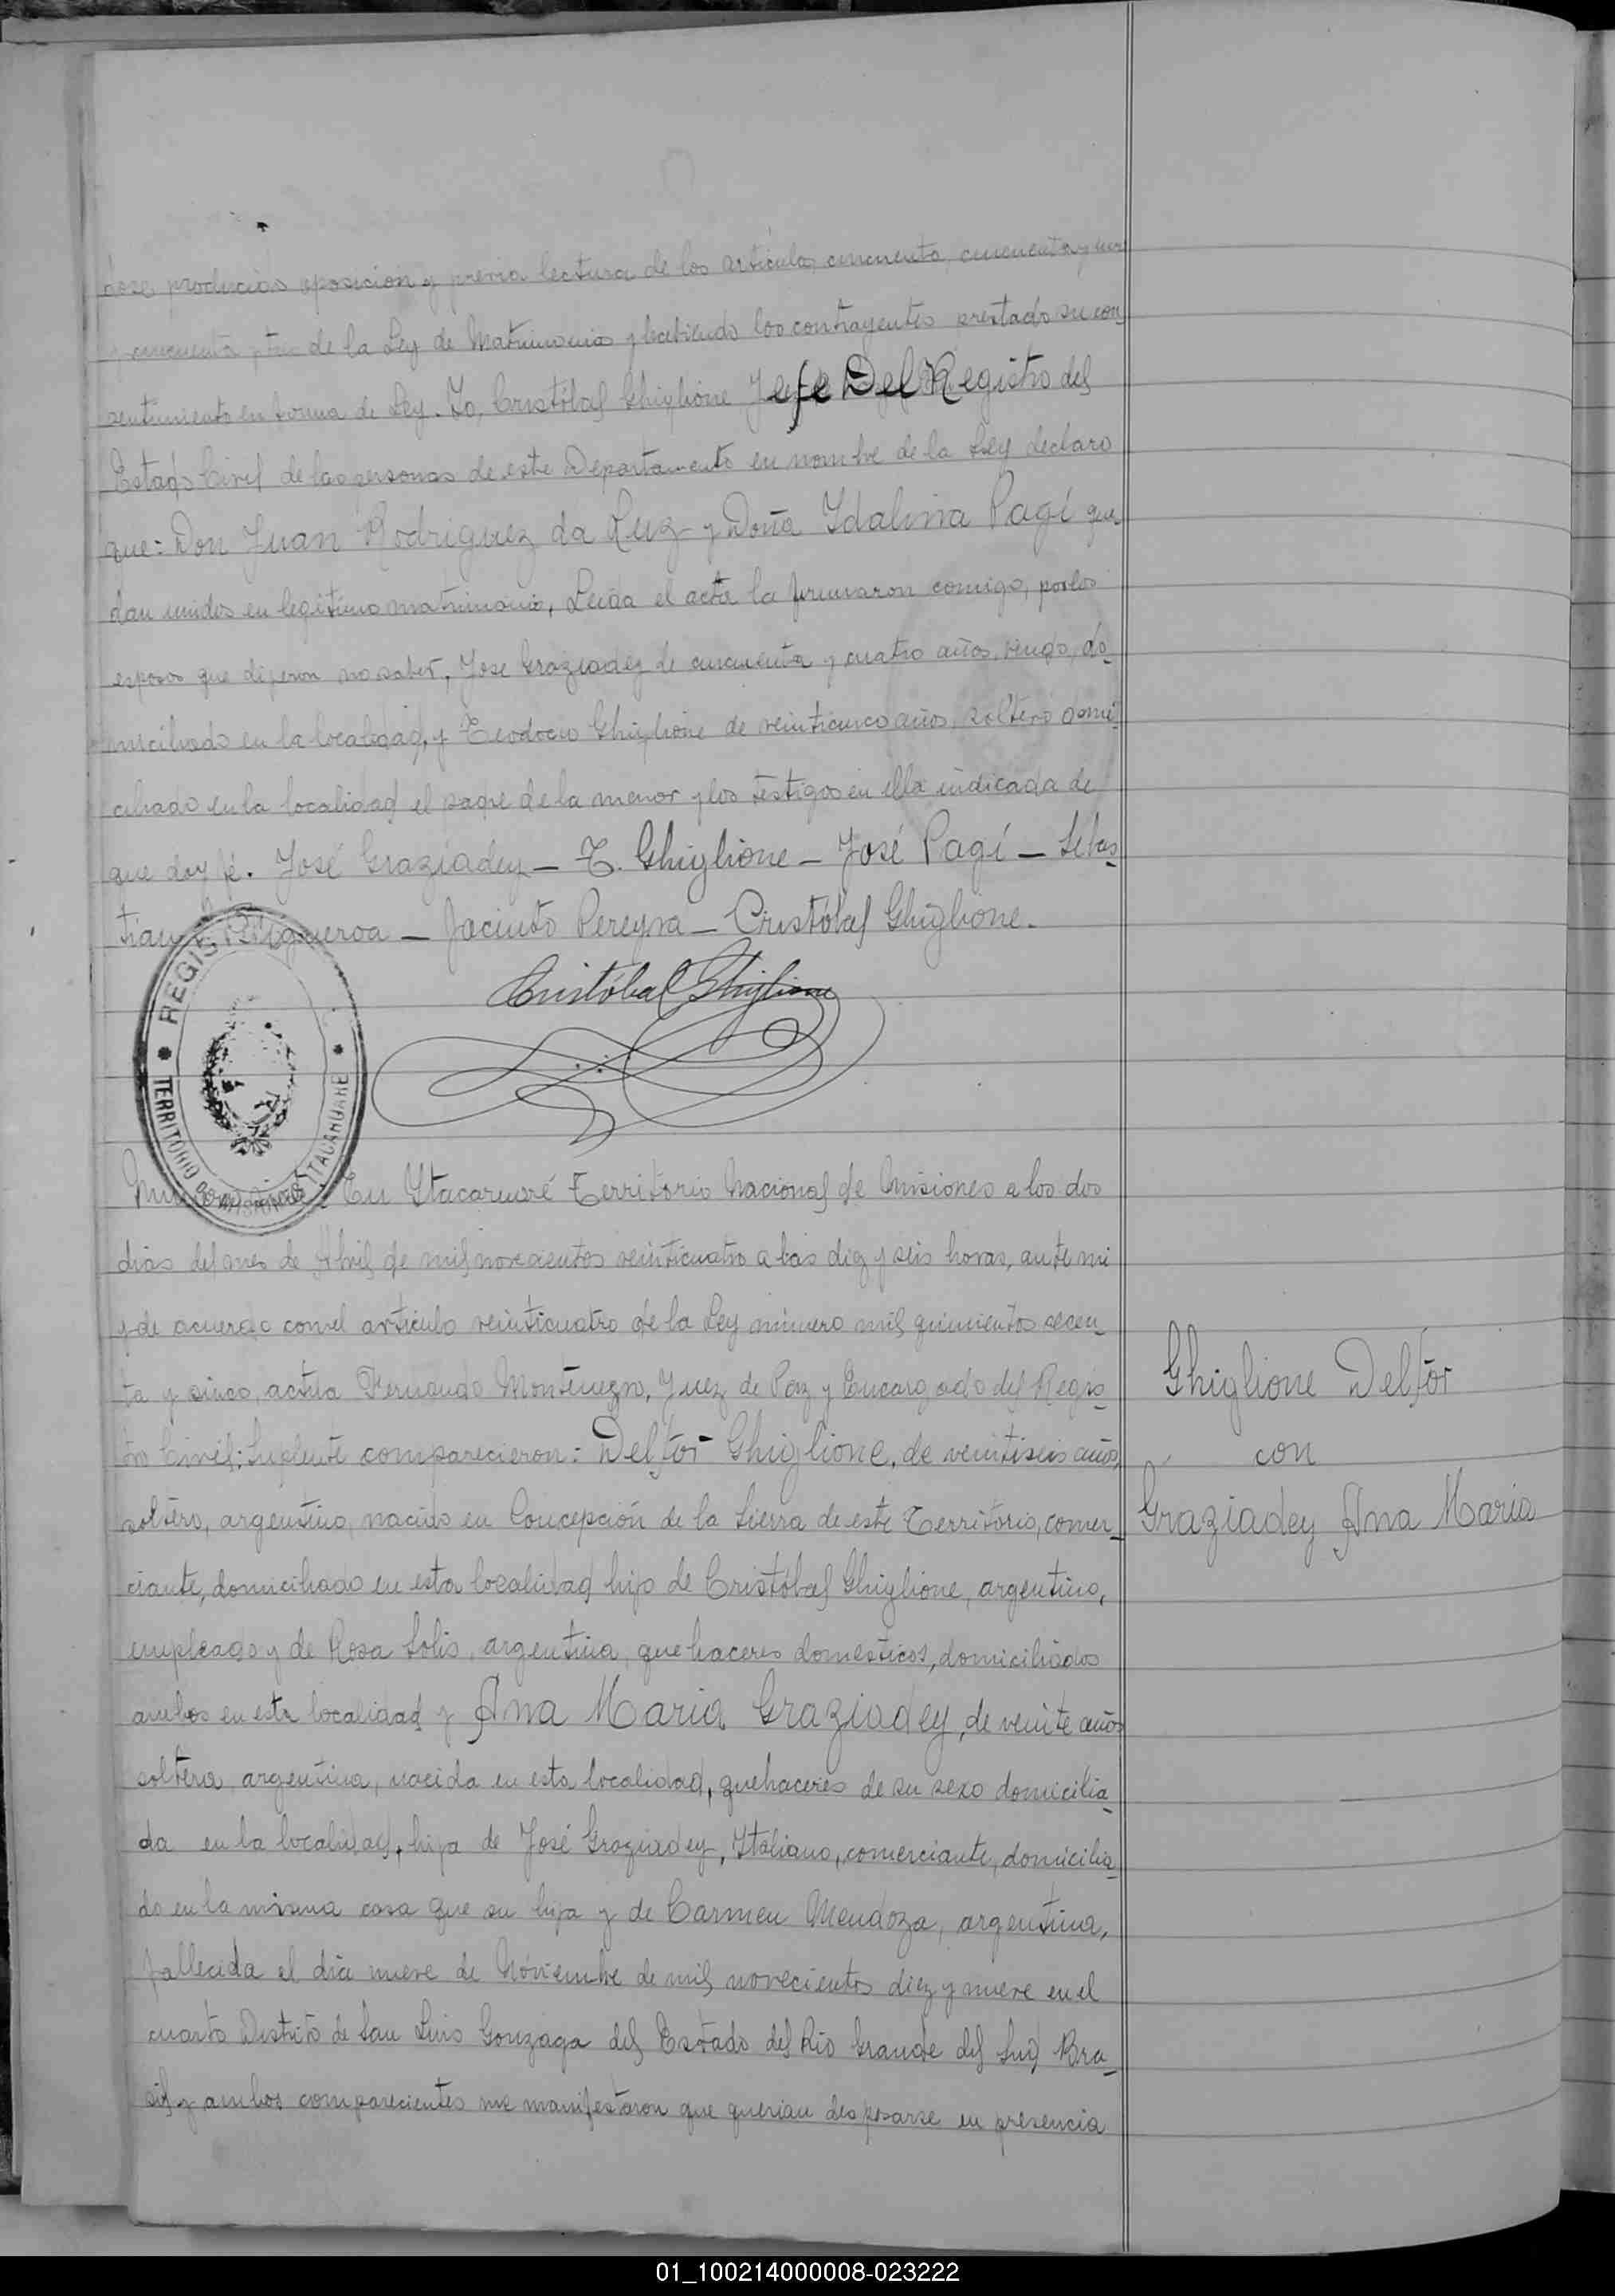 dose producido oposición y previa lectura de los artículos cincuenta, cincuenta y uno
y cincuenta y tres de la Ley de Matrimonio y habiendo los contrayentes prestado su con
sentimiento en forma de Ley. Yo, Cristóbal Ghiglione Jefe Del Registro del
Estado Civil de las personas de este Departamento en nombre de la Ley declaro
que: Don Juan Rodriguez da Luz y Doña Idalina Pagí que
dan unidos en legítimo matrimonio, Leída el acta la firmaron conmigo, por los
esposos que dijeron no saber, Jose Graziadey de cincuenta y cuatro años, viudo, do
miciliado en la localidad, y Teodocio Ghiglione de veinticinco años, soltero domi
ciliado en la localidad el padre de la menor y los testigos en ella indicada de
que doy fé. José Graziadey – T. Ghiglione – José Pagí – Sebas
tian Figueroa – Jacinto Pereyra – Cristóbal Ghiglione.
Cristóbal Ghiglione
REGIS
TERRITORIO DE MISIONES ITACARUARE
En Ytacaruaré Territorio Nacional de Misiones a los dos
dias del mes de Abril de mil novecientos veinticuatro a las diez y seis horas, ante mi
y de acuerdo con el artículo veinticuatro de la Ley número mil quinientos secen
ta y cinco, actúa Fernando Montenegro, Juez de Paz y Encargado del Regis
tro Civil: Suplente comparecieron: Delfor Ghiglione, de veintiseis años,
soltero, argentino, nacido en Concepción de la Sierra de este Territorio, comer
ciante, domiciliado en esta localidad hijo de Cristóbal Ghiglione, argentino,
empleado y de Rosa Solis, argentina, que haceres domésticos, domiciliados
ambos en esta localidad y Ana Maria Graziadey, de veinte años
soltera, argentina, nacida en esta localidad, quehaceres de su sexo domicilia
da en la localidad, hija de José Graziadey, Italiano, comerciante, domicilia
do en la misma casa que su hija y de Carmen Mendoza, argentina,
fallecida el día nueve de Nóviembre de mil novecientos diez y nueve en el
cuarto Distrito de San Luis Gonzaga del Estado del Río Grande del Sud, Bra
sil y ambos comparecientes me manifestaron que querian desposarse en presencia
Ghiglione Delfor
con
Graziadey Ana Maria
01_100214000008-023222